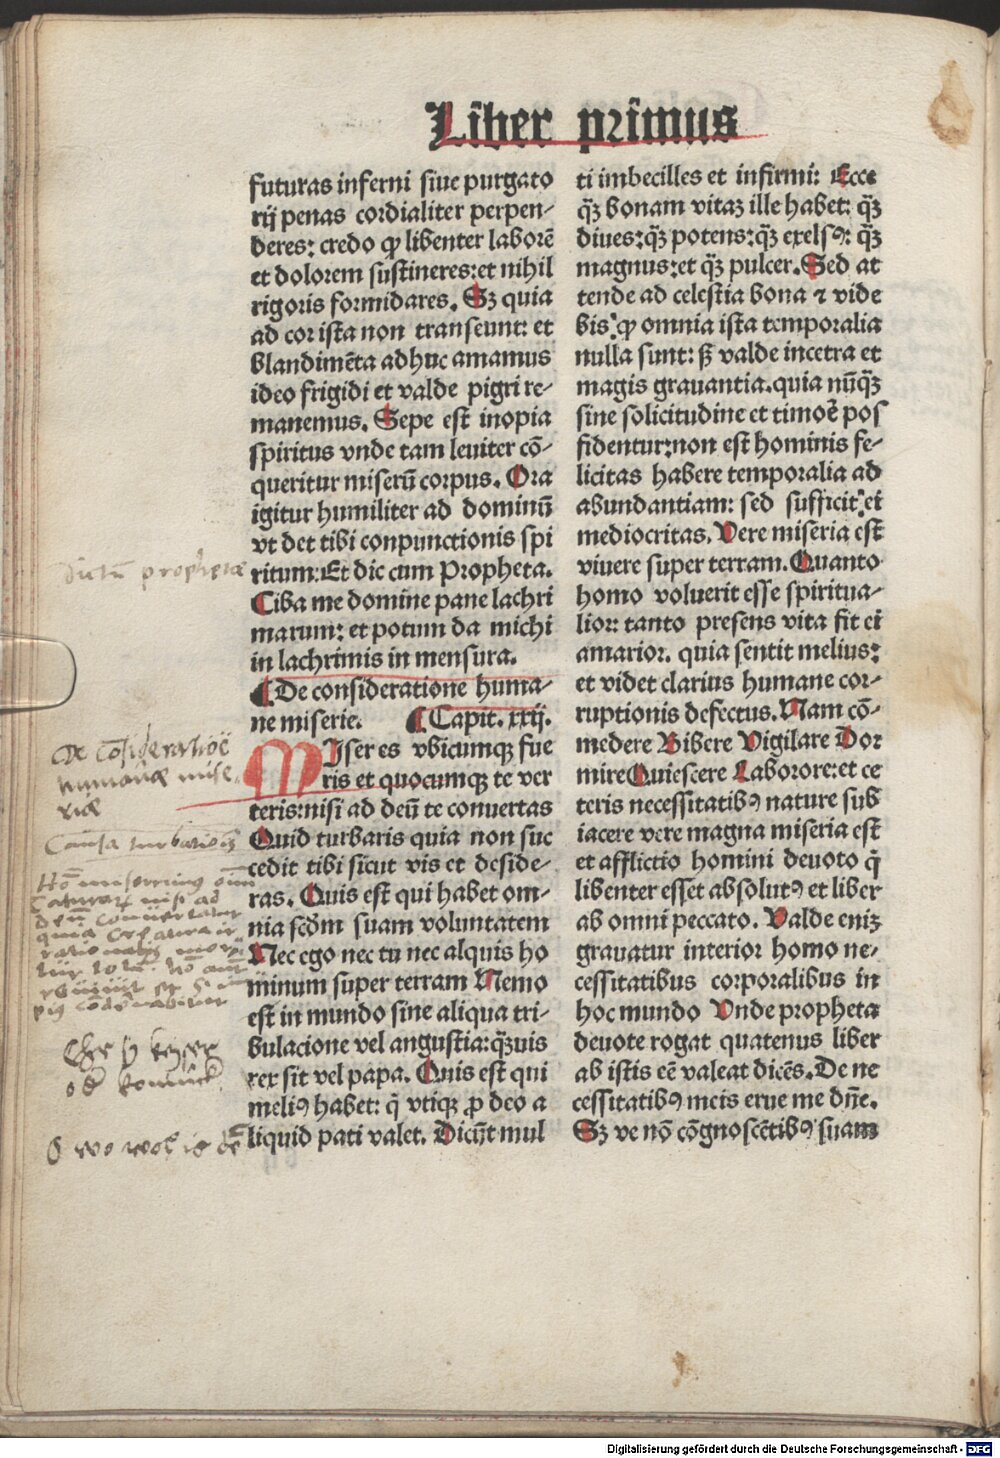 Liber primus
futuras inferni siue purgato
rij penas cordialiter perpen-
deres: credo ꝙ libenter laborē
et dolorem sustineres: et nihil
rigoris formidares. Sꝫ quia
ad cor ista non transeunt: et
blandimēta adhuc amamus
ideo frigidi et valde pigri re-
manemus. Sepe est inopia
spiritus vnde tam leuiter cō-
queritur miserū corpus. Ora
igitur humiliter ad dominū
vt det tibi conpunctionis spi
ritum: Et dic cum Propheta.
Ciba me domine pane lachri
marum: et potum da michi
in lachrimis in mensura.
¶ De consideratione huma-
ne miserie. ¶ Capit. xxij.
MIser es vbicumqꝫ fue
ris et quocumqꝫ te ver
teris: nisi ad deū te conuertas
Quid turbaris quia non suc
cedit tibi sicut vis et deside-
ras. Quis est qui habet om-
nia scđm suam voluntatem
Nec ego nec tu nec alquis ho
minum super terram Nemo
est in mundo sine aliqua tri-
bulacione vel angustia: qꝫuis
rex sit vel papa. Quis est qui
meliꝰ habet: q̄ vtiqꝫ ꝓ deo a
liquid pati valet. Dicūt mul
ti imbecilles et infirmi: Ecce
qꝫ bonam vitaꝫ ille habet: qꝫ
diues: qꝫ potens: qꝫ exelsꝰ: qꝫ
magnus: et qꝫ pulcer. Sed at
tende ad celestia bona ⁊ vide
bis: ꝙ omnia ista temporalia
nulla sunt: sꝫ valde incetra et
magis grauantia. quia nūqꝫ
sine solicitudine et timoē pos
fidentur: non est hominis fe-
licitas habere temporalia ad
abundantiam: sed sufficit: ei
mediocritas. Vere miseria est
viuere super terram. Quanto
homo voluerit esse spiritua-
lior: tanto presens vita fit ei
amarior. quia sentit melius:
et videt clarius humane cor-
ruptionis defectus. Nam cō-
medere Bibere Vigilare Dor
mire Quiescere Laborore: et ce
teris necessitatibꝰ nature sub
iacere vere magna miseria est
et afflictio homini deuoto q̄
libenter esset absolutꝰ et liber
ab omni peccato. Valde eniꝫ
grauatur interior homo ne-
cessitatibus corporalibus in
hoc mundo Vnde propheta
deuote rogat quatenus liber
ab istis eē valeat dicēs. De ne
cessitatibꝰ meis erue me dn̄e.
Sꝫ ve nō cōgnoscētibꝰ suam
dictū prophetae
De cōsideratiōe
humanae mise
riae
Causa turbationis
Digitalisierung gefördert durch die Deutsche Forschungsgemeinschaft - DFG